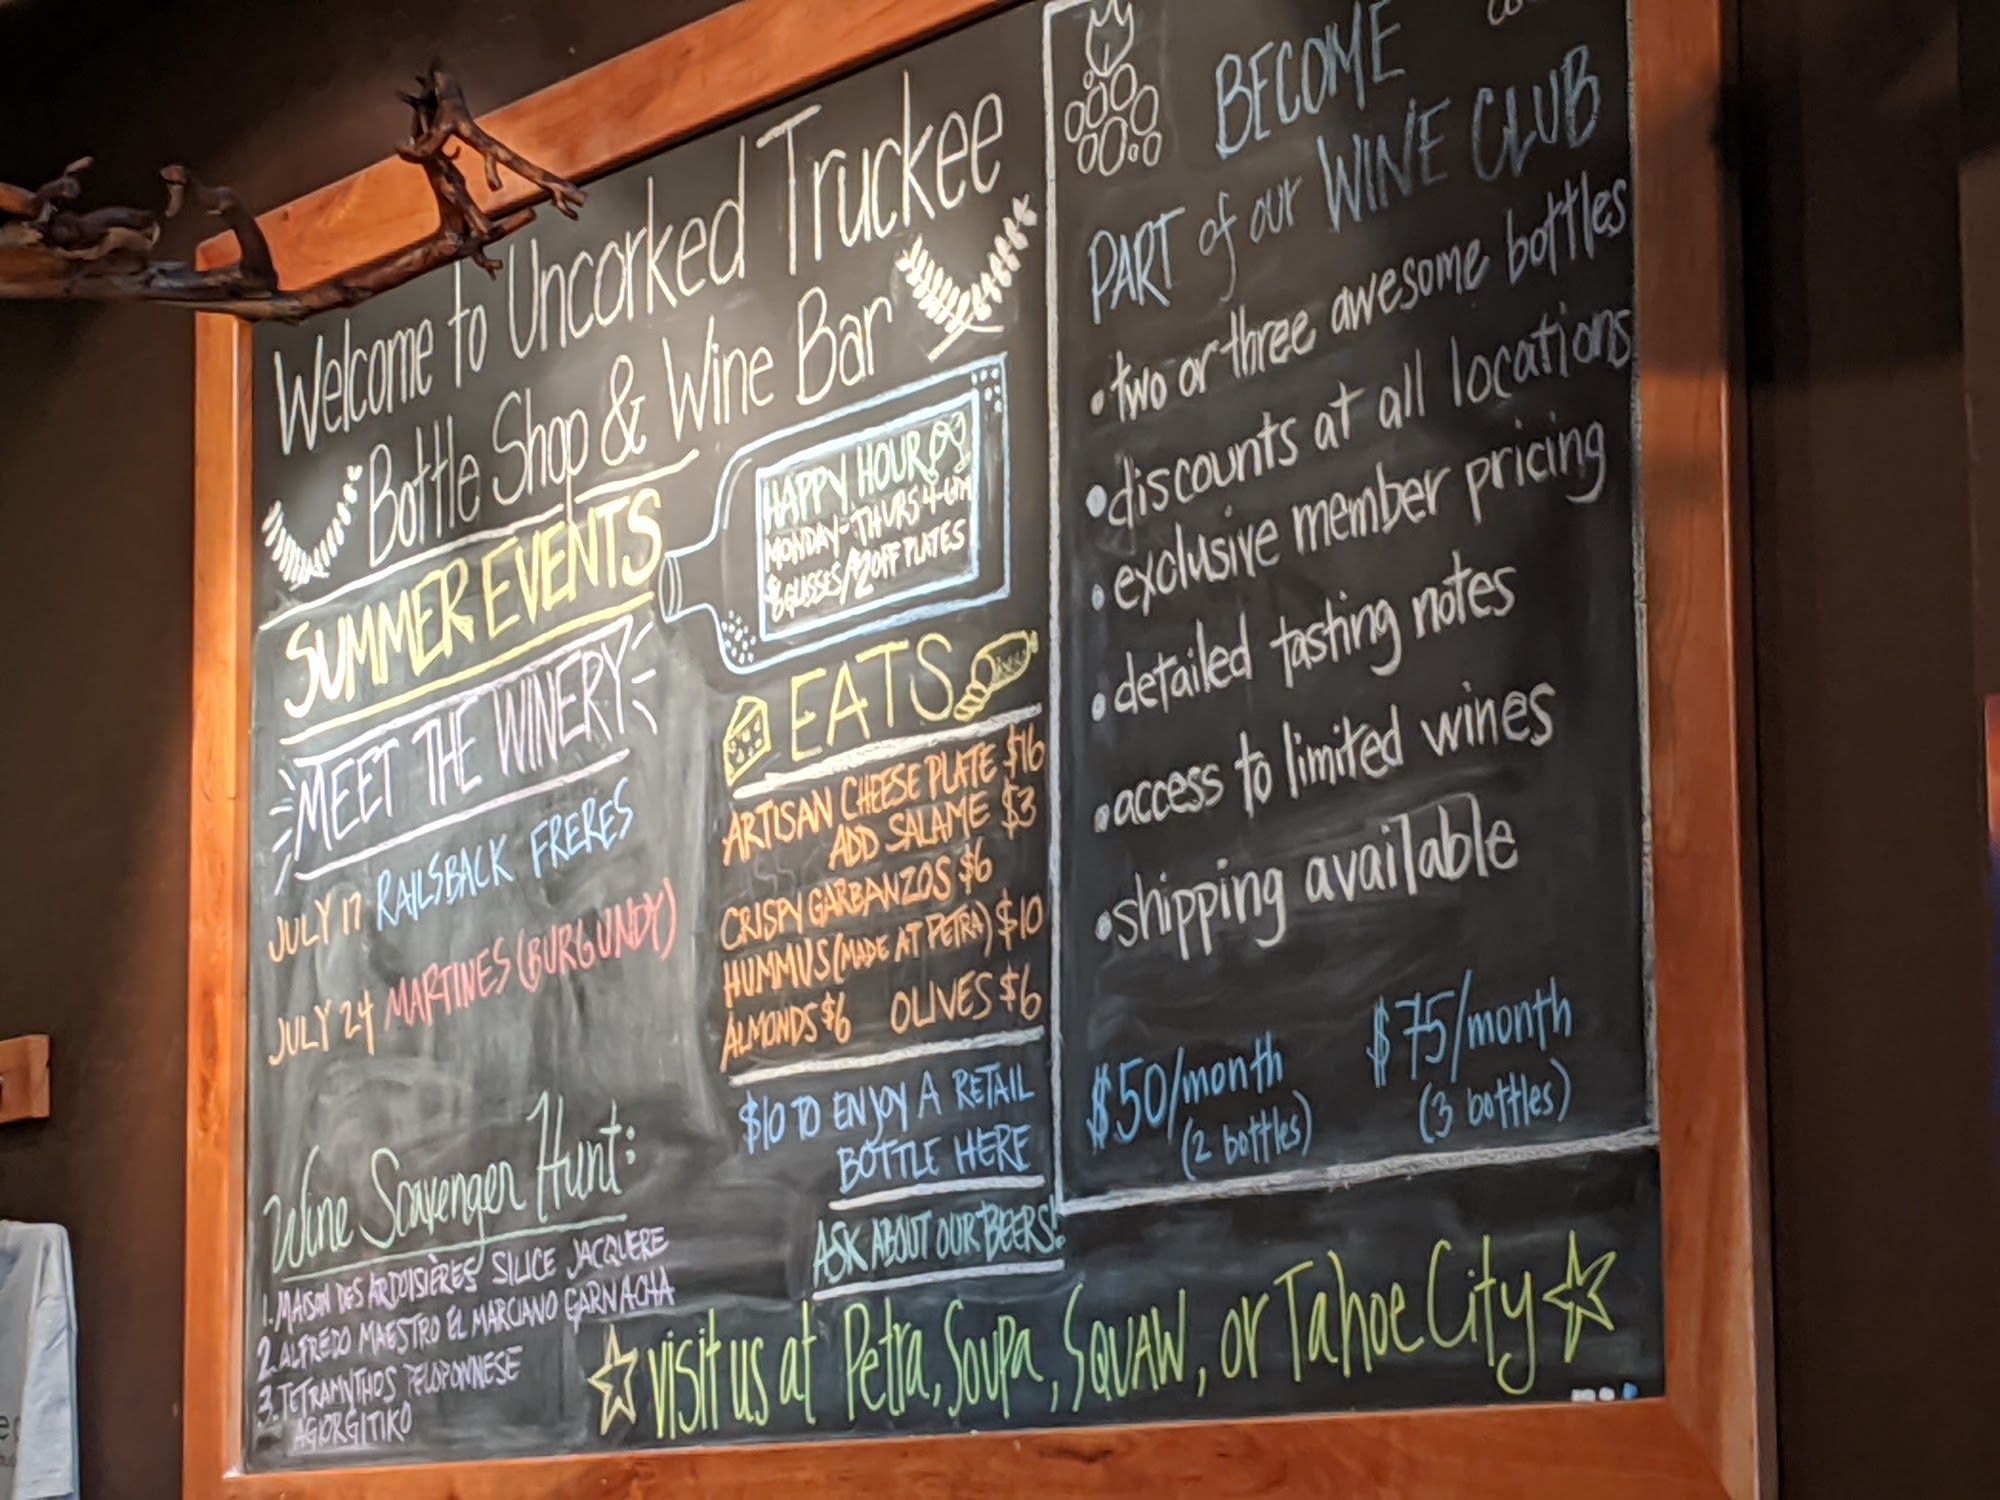 Welcome to Uncorked Truckee
Bottle Shop & Wine Bar
SUMMER EVENTS
MEET THE WINERY
JULY 17 RAILSBACK FRERES
JULY 24 MARTINES (BURGUNDY)
Wine Scavenger Hunt:
1. MAISON DES ARDOISIÈRES SILICE JACQUERE
2. ALFREDO MAESTRO EL MARCIANO GARNACHA
3. TETRAMYTHOS PELOPONNESE
AGIORGITIKO
HAPPY HOUR
MONDAY-THURS 4-6PM
$6 GLASSES/$2 OFF PLATES
EATS
ARTISAN CHEESE PLATE $16
ADD SALAME $3
CRISPY GARBANZOS $6
HUMMUS (MADE AT PETRA) $10
ALMONDS $6 OLIVES $6
$10 TO ENJOY A RETAIL
BOTTLE HERE
ASK ABOUT OUR BEERS!
BECOME
PART of our WINE CLUB
• two or three awesome bottles
• discounts at all locations
• exclusive member pricing
• detailed tasting notes
• access to limited wines
• shipping available
$50/month
(2 bottles)
$75/month
(3 bottles)
visit us at Petra, Soupa, SQUAW, or Tahoe City